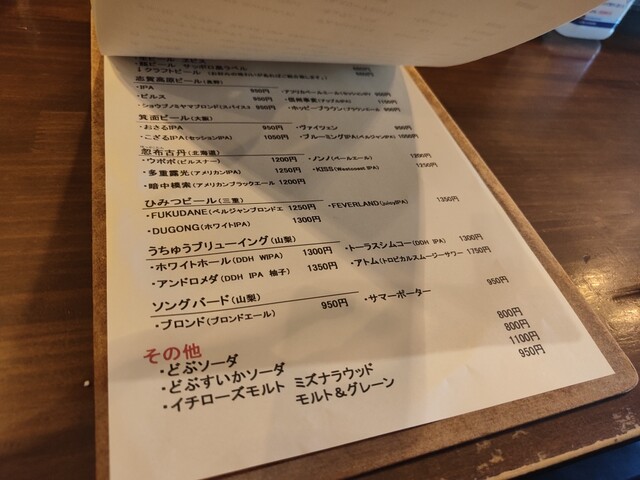 ・瓶ビール サッポロ黒ラベル
↓クラフトビール
志賀高原ビール(長野)
・IPA 950円 ・アフリカペールエール
・ピルス 900円 1100円
・ショウブノ&ヤマブロンド 950円 ・ポッピーブラウン(ブラウンエール 950円
箕面ビール(大阪)
・おさるIPA 950円 ・ヴァイツェン 950円
・こざるIPA(セッションIPA) 1050円 ・ブルーミングIPA(ベルジャンIPA) 1050円
忽布古丹(北海道)
・ウポポ(ピルスナー) 1200円 ・ノンノ(ペールエール) 1200円
・多重露光(アメリカンIPA) 1250円 ・KISS(Westcoast IPA) 1250円
・暗中模索(アメリカンブラックエール 1200円
ひみつビール(三重)
・FUKUDANE(ベルジャンブロンドエ 1250円 ・FEVERLAND(juicyIPA) 1350円
・DUGONG(ホワイトIPA) 1300円
うちゅうブリューイング(山梨)
・ホワイトホール(DDH WIPA) 1300円 ・トーラスシムコー(DDH IPA) 1300円
・アンドロメダ(DDH IPA 柚子) 1350円 ・アトム(トロピカルスムージーサワー 1750円
ソングバード(山梨)
・ブロンド(ブロンドエール) 950円 ・サマーポーター 950円
その他
・どぶソーダ 800円
・どぶすいかソーダ 800円
・イチローズモルト ミズナラウッド 1100円
モルト&グレーン 950円